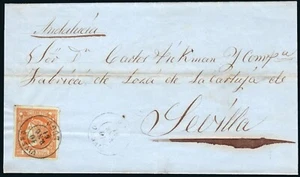 Andalucía
Sor Dn Carlos Pickman y Compa
Fabrica de Loza de la Cartuja de
Sevilla